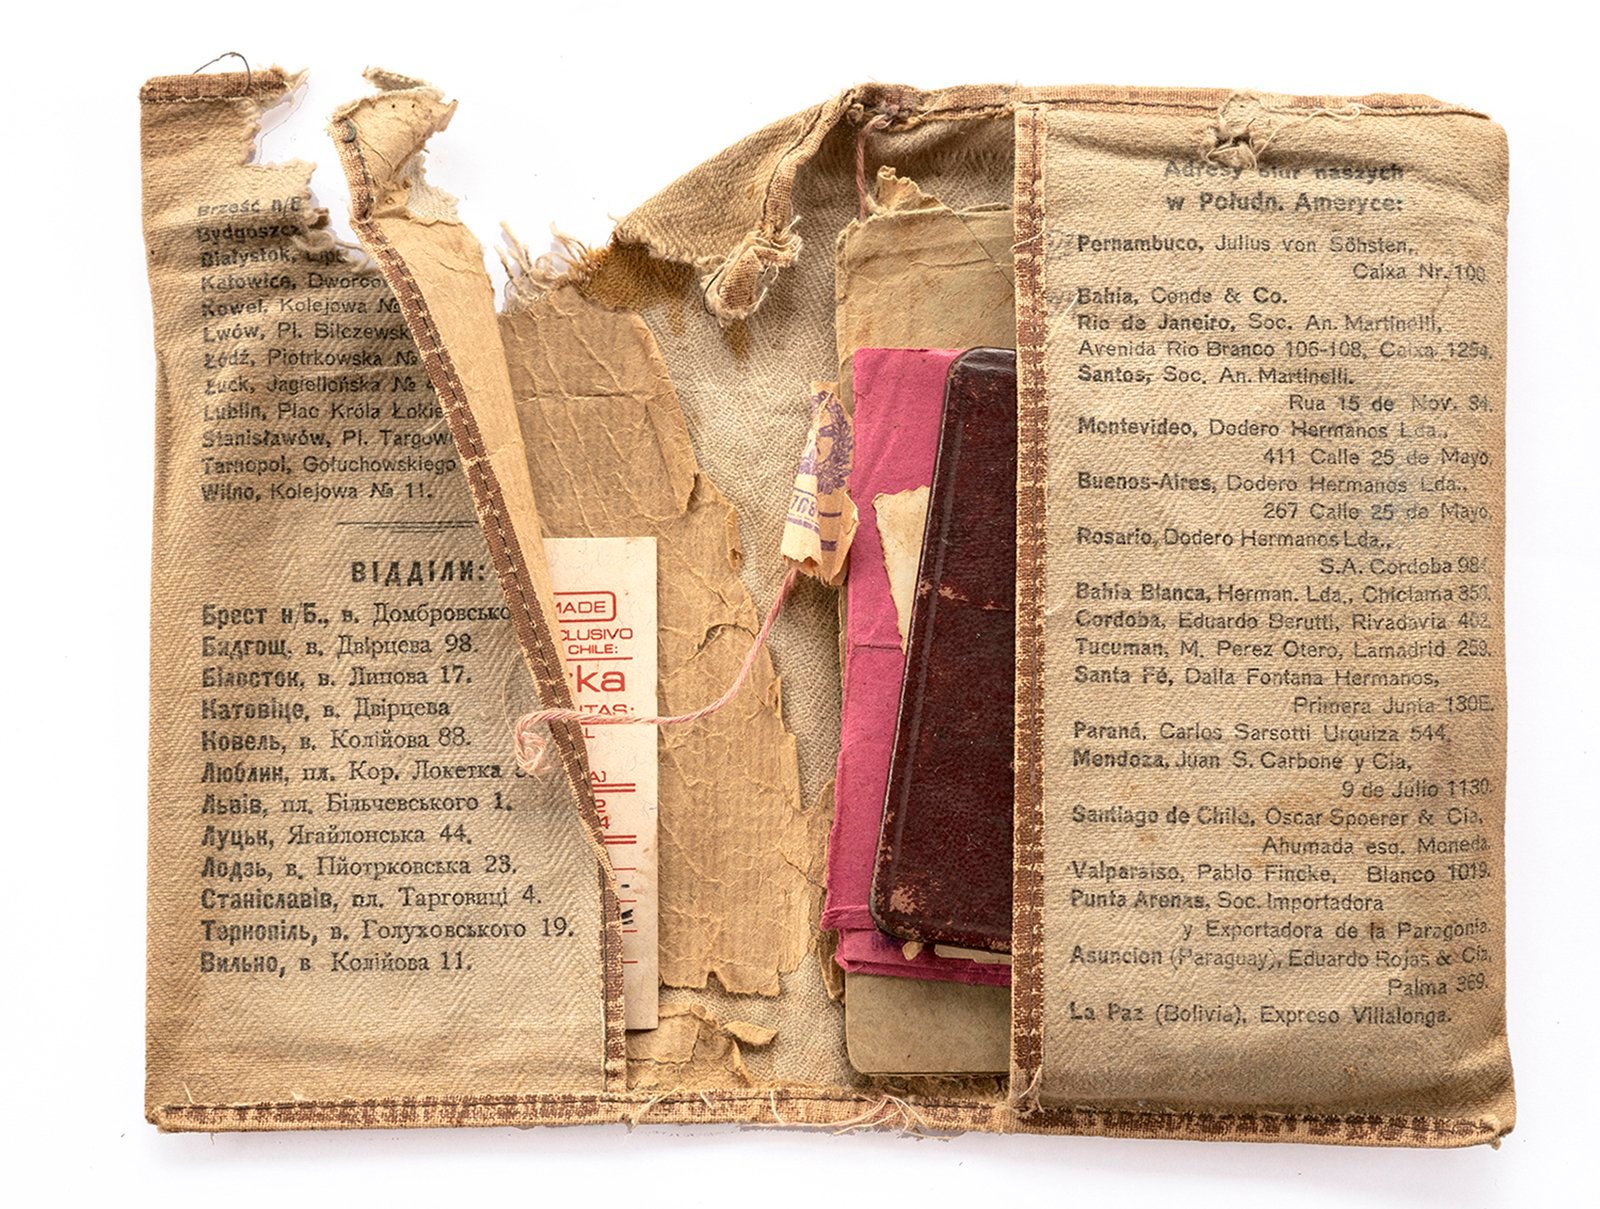 Brześć n/B
Bydgoszcz
Białystok, Lipo
Katowice, Dworcow
Kowel, Kolejowa №
Lwów, Pl. Bilczewsk
Łódź, Piotrkowska №
Łuck, Jagiellońska № 4
Lublin, Plac Króla Łokie
Stanisławów, Pl. Targow
Tarnopol, Gołuchowskiego
Wilno, Kolejowa № 11.
ВІДДІЛИ:
Брест н/Б., в. Домбровсько
Бидгощ, в. Двірцева 98.
Білосток, в. Липова 17.
Катовіце, в. Двірцева
Ковель, в. Колійова 88.
Люблин, пл. Кор. Локетка
Львів, пл. Більчевського 1.
Луцьк, Ягайлонська 44.
Лодзь, в. Пйотрковська 23.
Станіславів, пл. Тарговиці 4.
Тернопіль, в. Голуховського 19.
Вильно, в Колійова 11.
MADE
CLUSIVO
CHILE:
ka
NTAS:
L
AJ
4
708
Adresy biur naszych
w Połudn. Ameryce:
Pernambuco, Julius von Söhsten,
Caixa Nr. 108.
Bahia, Conde & Co.
Rio de Janeiro, Soc. An. Martinelli,
Avenida Rio Branco 106-108, Caixa 1254.
Santos, Soc. An. Martinelli.
Rua 15 de Nov. 34.
Montevideo, Dodero Hermanos Lda.,
411 Calle 25 de Mayo.
Buenos-Aires, Dodero Hermanos Lda.,
267 Calle 25 de Mayo.
Rosario, Dodero Hermanos Lda.,
S.A. Cordoba 984.
Bahia Blanca, Herman. Lda., Chiclama 350.
Cordoba, Eduardo Berutti, Rivadavia 402.
Tucuman, M. Perez Otero, Lamadrid 259.
Santa Fé, Dalla Fontana Hermanos,
Primera Junta 130E.
Paraná, Carlos Sarsotti Urquiza 544.
Mendoza, Juan S. Carbone y Cia,
9 de Julio 1130.
Santiago de Chile, Oscar Spoerer & Cia,
Ahumada esq. Moneda.
Valparaiso, Pablo Fincke, Blanco 1019.
Punta Arenas, Soc. Importadora
y Exportadora de la Paragonia.
Asuncion (Paraguay), Eduardo Rojas & Cia,
Palma 369.
La Paz (Bolivia), Expreso Villalonga.